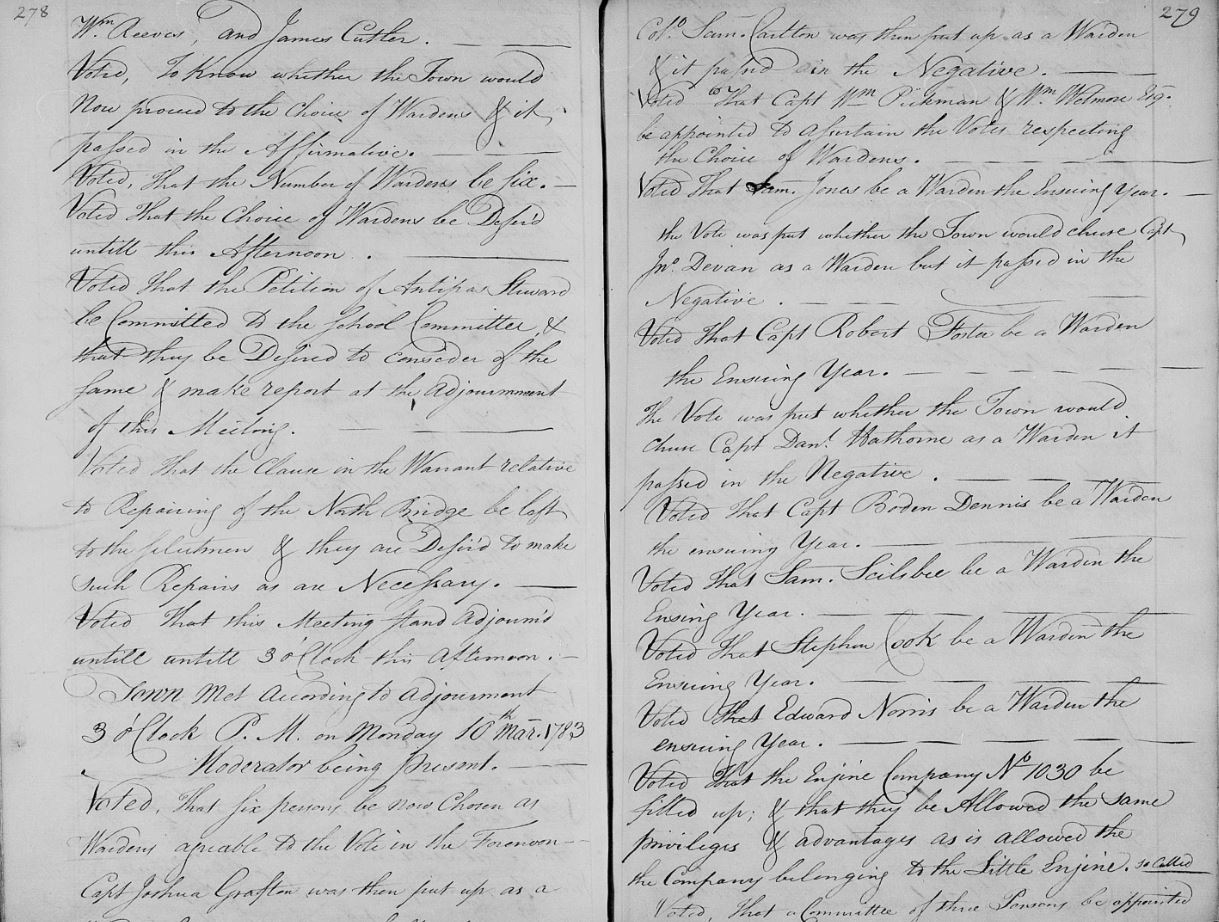 278
Wm. Reeves, and James Cutler.
Voted, To Know whether the Town would
Now proceed to the Choice of Wardens & it
passed in the Affirmative.
Voted, That the Number of Wardens be six.
Voted That the Choice of Wardens be Defer'd
untill this Afternoon.
Voted That the Petition of Antipas Steward
be Committed to the School Committee, &
that they be Desired to consider of the
same & make report at the Adjournment
of this Meeting.
Voted That the Clause in the Warrant relative
to Repairing of the North Bridge be left
to the selectmen & they are Desir'd to make
such Repairs as are Necessary.
Voted That this Meeting stand Adjourn'd
untill untill 3 o'Clock this Afternoon.
Town Met According to Adjourment
3 o'Clock P. M. on Monday 10th Mar. 1783
Moderator being present.
Voted, That six persons be now Chosen as
Wardens agreable to the Vote in the Forenoon
Capt Joshua Grafton was then put up as a
279
Colo. Sam. Carlton was then put up as a Warden
& it passed in the Negative.
Voted That Capt Wm Pickman & Wm. Wetmore Esq.
be appointed to asurtain the Votes respecting
the Choice of Wardens.
Voted That Sam. Jones be a Warden the Ensuing Year.
the Vote was put whether the Town would chuse Capt
Jno. Devan as a Warden but it passed in the
Negative.
Voted That Capt Robert Foster be a Warden
the Ensuing Year.
The Vote was put whether the Town would
Chuse Capt Danl. Hathorne as a Warden it
passed in the Negative.
Voted That Capt Boden Dennis be a Warden
the ensuing Year.
Voted That Sam. Seilsbee be a Warden the
Ensing Year.
Voted That Stephen Cook be a Warden the
Ensuing Year.
Voted That Edward Norris be a Warden the
ensuing Year.
Voted That the Engine Company No 1030 be
filled up; & that they be Allowed the same
privileges & advantages as is allowed the
the Company belonging to the Little Engine. so Called
Voted, That a Committee of three Persons be appointed